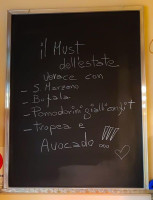 il Must
dell'estate
verace con
- S. Marzano
- Bufala
- Pomodorini gialli confit
- Tropea e
Avocado !!!!